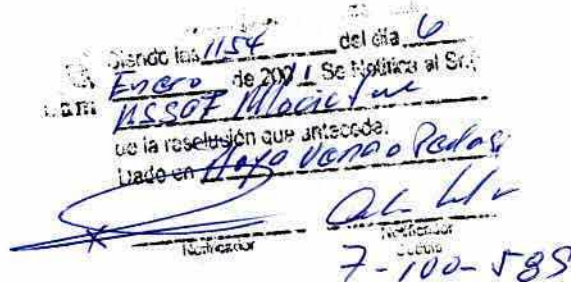 Siendo las 1154 del día 6
Enero de 200 1 Se Notifica al Sr.
de la resolución que antecede.
Dado en Playa Venao Pedasí
Notificador Notificador
Cédula
7-100-585